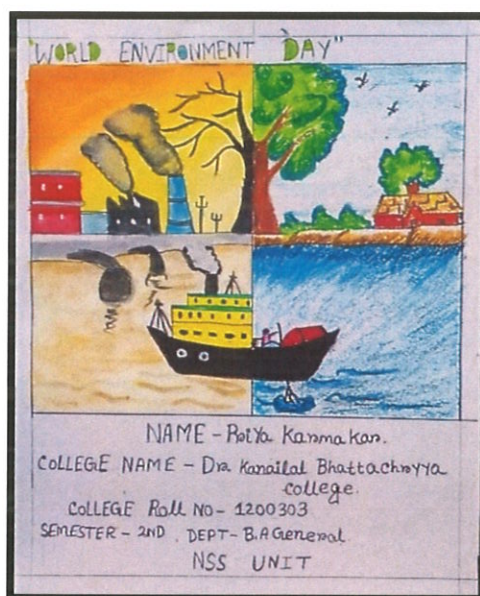 "WORLD ENVIRONMENT DAY"
NAME - Roiya Karmakar.
COLLEGE NAME - Dr. Kanailal Bhattacharyya
College.
COLLEGE Roll NO - 1200303
SEMESTER - 2ND, DEPT - B.A General
NSS UNIT